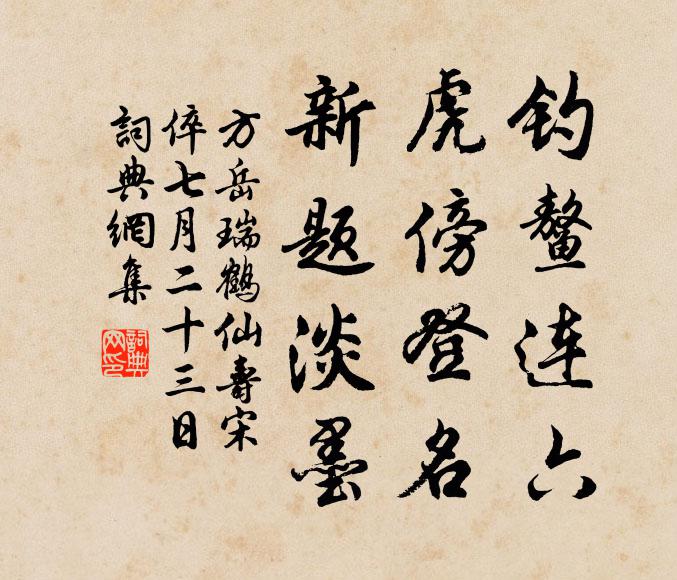 钓鳌连六
虎傍登名
新题淡墨
方岳瑞鹤仙寿宋
倅七月二十三日
詞典網集
詞典網印